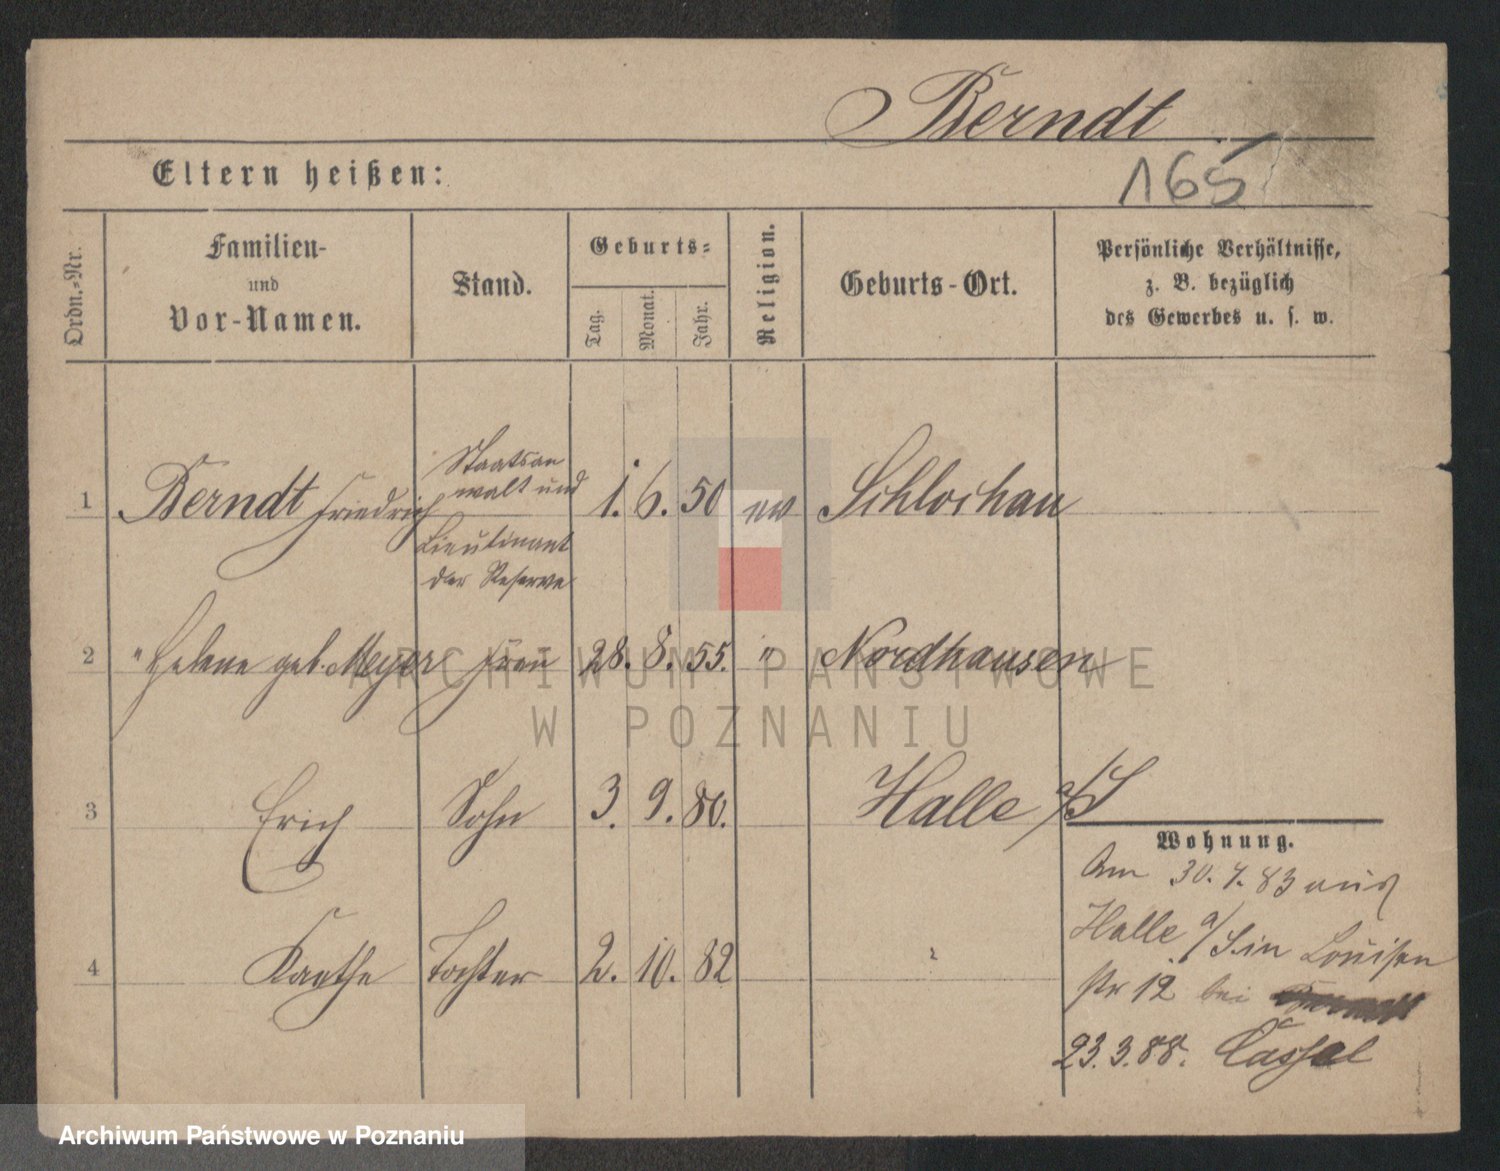 Berndt
165
Eltern heißen:
Ordn.-Nr.
Familien-
und
Vor-Namen.
Stand.
Geburts-
Tag.
Monat.
Jahr.
Religion.
Geburts-Ort.
Persönliche Verhältnisse,
z. B. bezüglich
des Gewerbes u. s. w.
1 Berndt Friedrich Staatsan
walt und
Lieutinant
der Reserve
1. 6. 50 ev Schlochau
2 " Helene geb. Meyer Frau 28. 8. 55. " Nordhausen
3 Erich Sohn 3. 9. 80. Halle a/S
4 Kaethe Tochter 2. 10. 82 "
Wohnung.
Am 30. 4. 83 aus
Halle a/S. in Louisen
str 12 bei
23. 3. 88. Cassel
ARCHIWUM PAŃSTWOWE
W POZNANIU
Archiwum Państwowe w Poznaniu